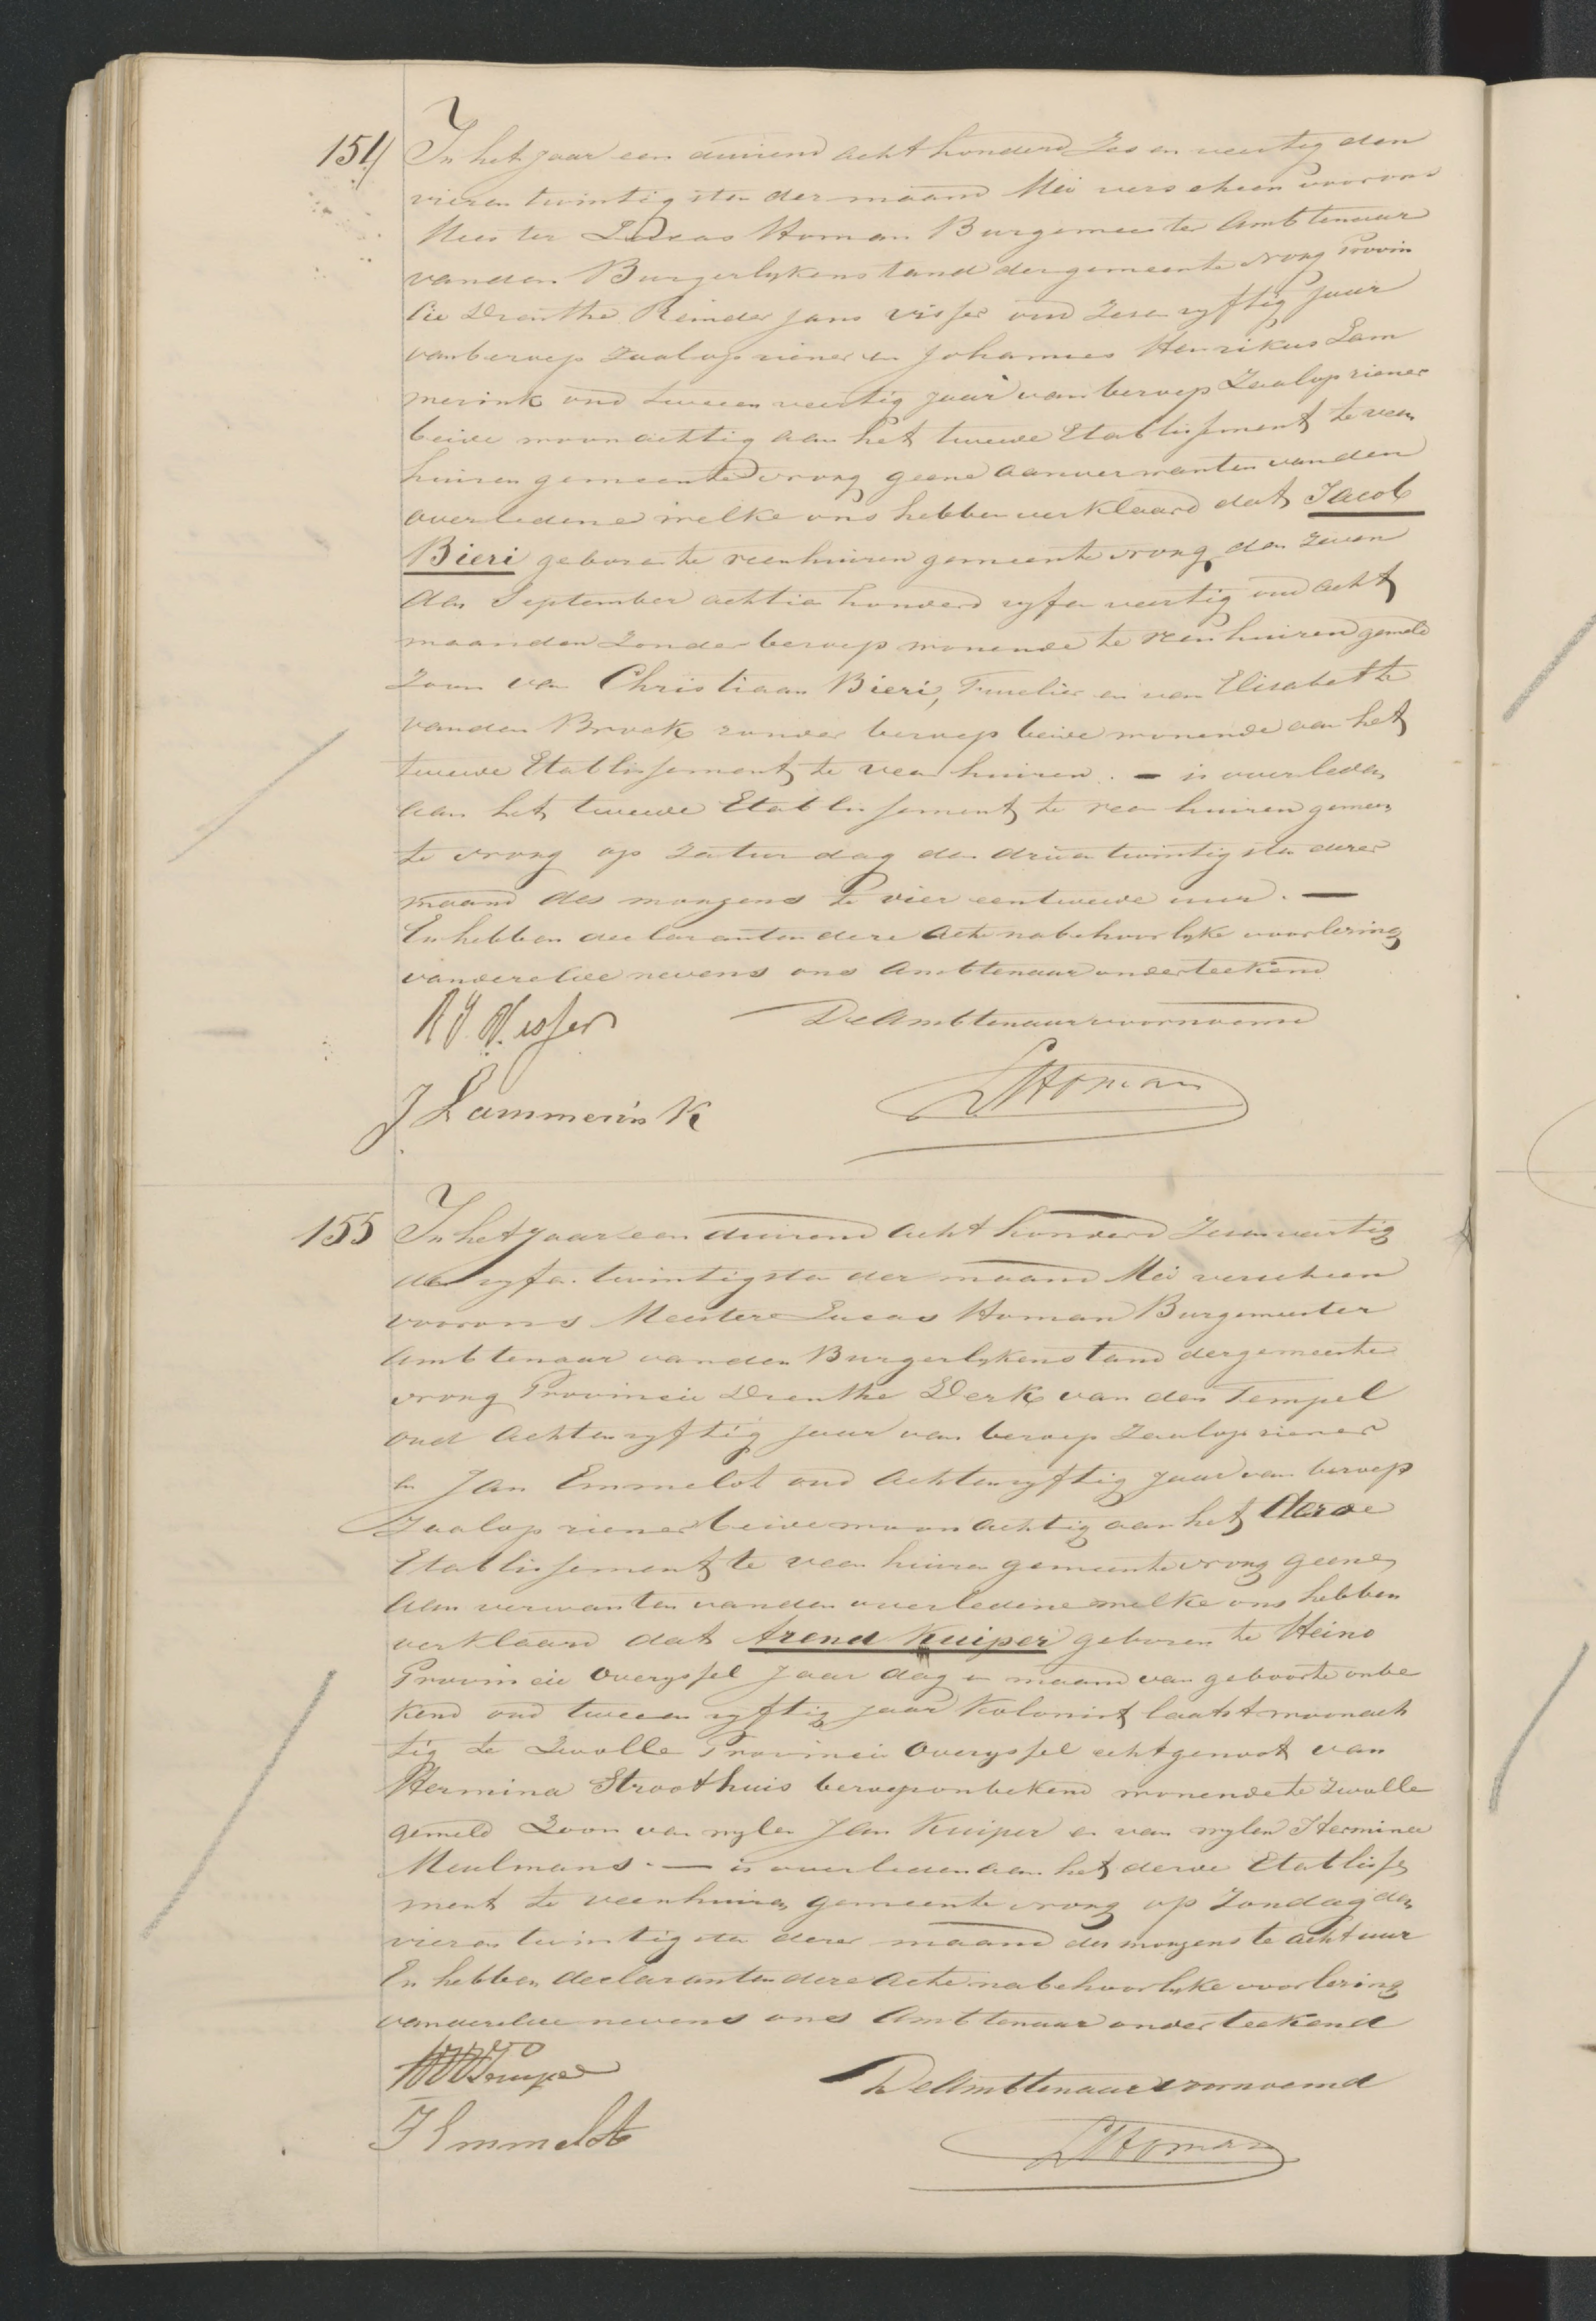 154
In het jaar een duizend acht honderd Zes en veertig den
vieren twintigsten der maand Mei verscheen voor ons
Meester Lucas Homan Burgemeester Ambtenaar
van den Burgerlyken stand der gemeente Norg Provin
cie Drenthe Reinder Jans Visser oud Zesen vyftig Jaar
van beroep Zaalopziener en Johannes Henrikus Lam
merink oud tweeen veertig jaar van beroep Zaalopziener
beide woonachtig aan het tweede Etablissement te veen
huizen gemeente Norg geene aanverwanten van den
overledene welke ons hebben verklaard dat Jacob
Bieri geboren te veenhuizen gemeente Norg den Zeven
den September achtien honderd vyfen veertig oud acht
maanden Zonder beroep wonende te veenhuizen gemeld
Zoon van Christiaan Bieri, Fuselier en van Elisabeth
van den Broek zonder beroep beide wonende aan het
tweede Etablissement te veenhuizen. — is overleden
aan het tweede Etablissement te veenhuizen gemeen
te Norg op Zaturdag den drieen twintigsten dezer
maand des morgens te vier eentweede uur. —
En hebben declaranten deze Acte na behoorlyke voorlezing
van dezelve nevens ons Ambtenaar onderteekend
R J Visser
De Ambtenaar voornoemd
J Lammerink
L Homan
155
In het Jaar een duizend acht honderd Zesenveertig
den vyfen twintigsten der maand Mei verscheen
voor ons Meester Lucas Homan Burgemeester
Ambtenaar van den Burgerlyken stand der gemeente
Norg Provincie Drenthe Derk van den Tempel
oud Achtenvyftig jaar van beroep Zaalopziener
en Jan Emmelot oud Achtenvyftig jaar van beroep
Zaalopziener beide woonachtig aan het derde
Etablissement te veenhuizen gemeente Norg geene
Aanverwanten van den overledene welke ons hebben
verklaard dat Arend Kuiper geboren te Heino
Provincie Overyssel Jaar dag en maand van geboorte onbe
kend oud tweeen vyftig jaar Kolonist laatst woonach
tig te Zwolle Provincie Overyssel echtgenoot van
Hermina Stroothuis beroep onbekend wonende te Zwolle
gemeld Zoon van wylen Jan Kuiper en van wylen Hermina
Meulmans. — is overleden aan het derde Etablisse
ment te veenhuizen gemeente Norg op Zondag den
vieren twintigsten dezer maand des morgens te acht uur
En hebben declaranten deze Acte na behoorlyke voorlezing
van dezelve nevens ons Ambtenaar onderteekend
Tempel
De Ambtenaar voornoemd
J Emmelot
L Homan